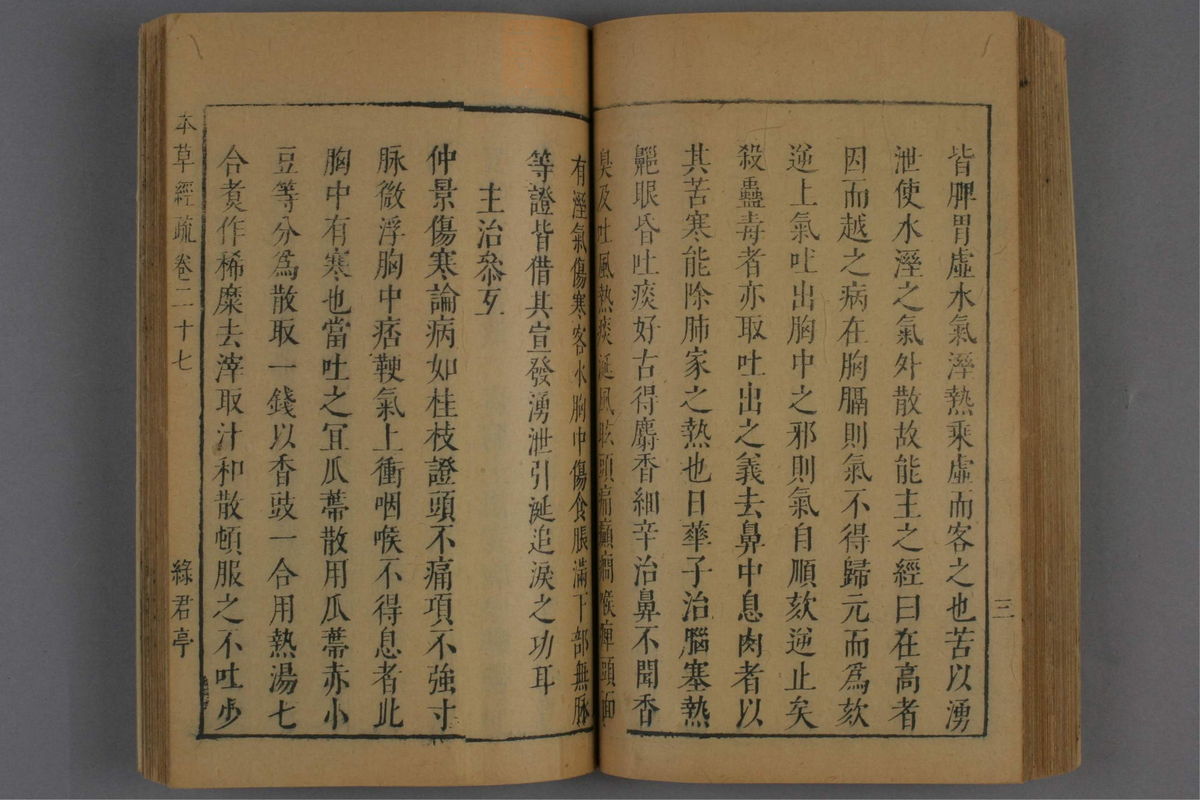 三
皆脾胃虛水氣溼熱乘虛而客之也苦以湧
泄使水溼之氣外散故能主之經曰在高者
因而越之病在胸膈則氣不得歸元而爲欬
逆上氣吐出胸中之邪則氣自順欬逆止矣
殺蠱毒者亦取吐出之義去鼻中息肉者以
其苦寒能除肺家之熱也日華子治腦塞熱
齆眼昏吐痰好古得麝香細辛治鼻不聞香
臭及吐風熱痰涎風眩頭痛癲癇喉痺頭面
有溼氣傷寒客水胸中傷食脹滿下部無脉
等證皆借其宣發湧泄引涎追淚之功耳
主治叅互
仲景傷寒論病如桂枝證頭不痛項不強寸
脉微浮胸中痞鞕氣上衝咽喉不得息者此
胸中有寒也當吐之宜瓜蔕散用瓜蔕赤小
豆等分爲散取一錢以香豉一合用熱湯七
合煑作稀糜去滓取汁和散頓服之不吐步
本草經疏卷二十七
綠君亭